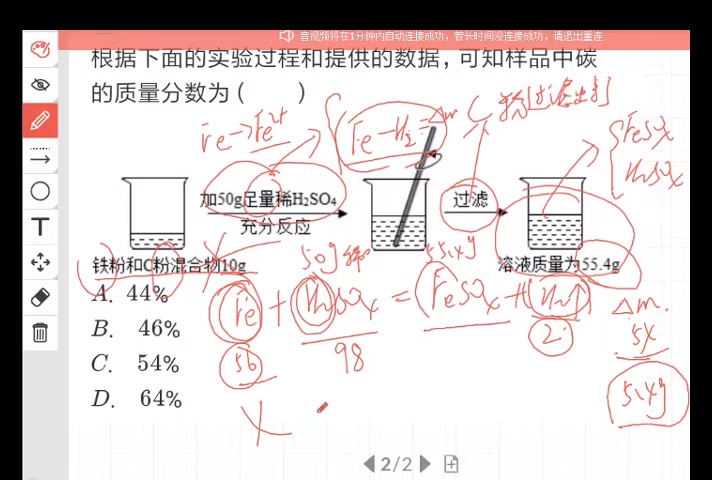 音视频将在1分钟内自动连接成功，若长时间没连接成功，请退出重连
根据下面的实验过程和提供的数据，可知样品中碳
的质量分数为 (　　)
Fe→Fe²⁺
Fe-H₂=Δm
FeSO₄
H₂SO₄
加50g足量稀H₂SO₄
充分反应
过滤
铁粉和C粉混合物10g
溶液质量为55.4g
50g稀
55.4g
A. 44%
B. 46%
C. 54%
D. 64%
Fe + H₂SO₄ = FeSO₄ + H₂↑
Δm
56
98
2
54
5.4g
X
T
2/2